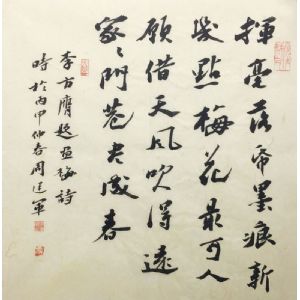 揮毫落帋墨痕新
幾點梅花最可人
願借天風吹得遠
家々門巷尽成春
李方膺題画梅詩
時於丙申仲春周廷軍